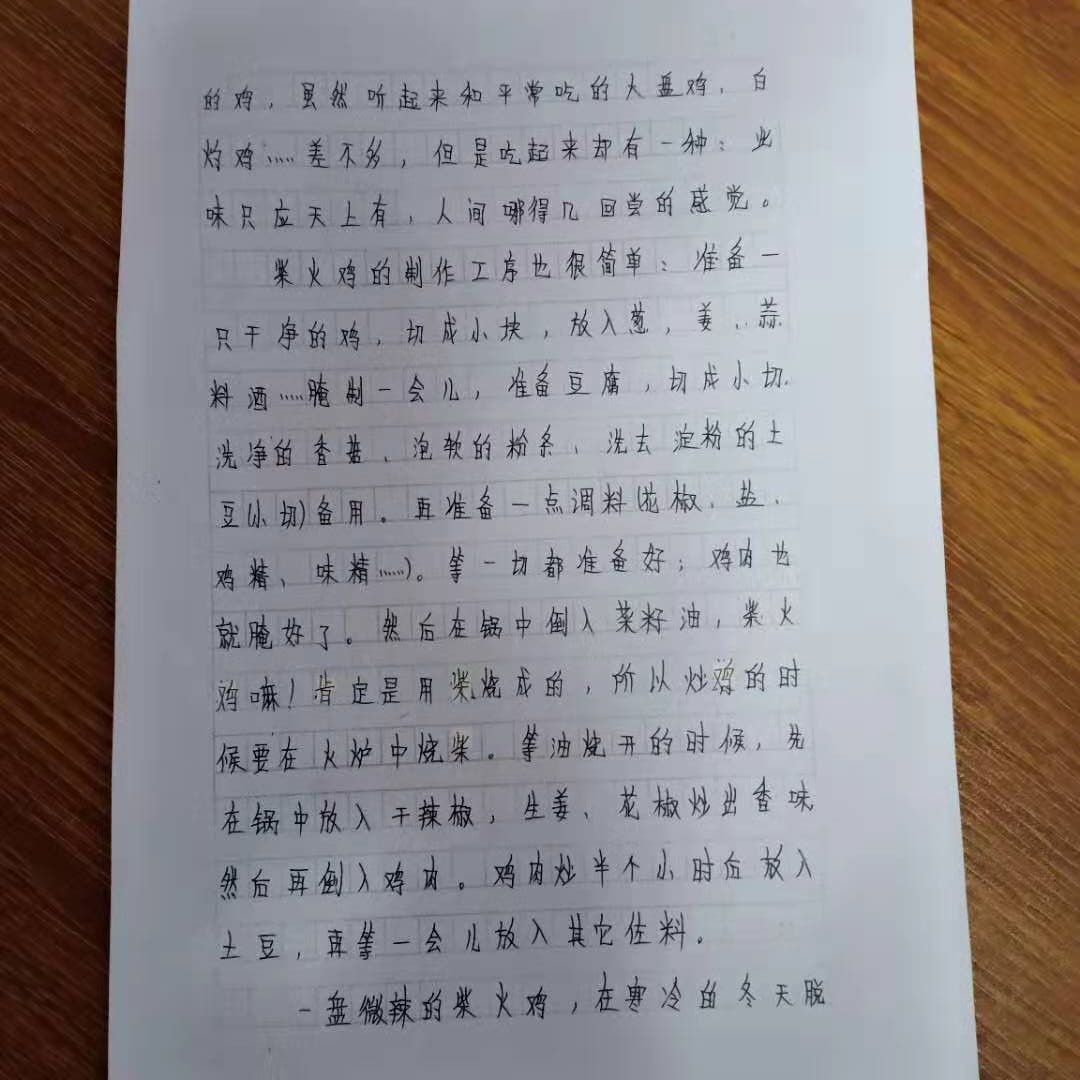 的鸡，虽然听起来和平常吃的大盘鸡、白
灼鸡……差不多，但是吃起来却有一种：此
味只应天上有，人间哪得几回尝的感觉。
柴火鸡的制作工序也很简单：准备一
只干净的鸡，切成小块，放入葱，姜、蒜
料酒……腌制一会儿，准备豆腐，切成小切.
洗净的香菇、泡软的粉条、洗去淀粉的土
豆(小切)备用。再准备一点调料(花椒、盐、
鸡精、味精……)。等一切都准备好；鸡肉也
就腌好了。然后在锅中倒入菜籽油，柴火
鸡嘛！肯定是用柴烧成的，所以炒鸡的时
候要在火炉中烧柴。等油烧开的时候，先
在锅中放入干辣椒，生姜、花椒炒出香味
然后再倒入鸡肉。鸡肉炒半个小时后放入
土豆，再等一会儿放入其它佐料。
一盘微辣的柴火鸡，在寒冷的冬天脱